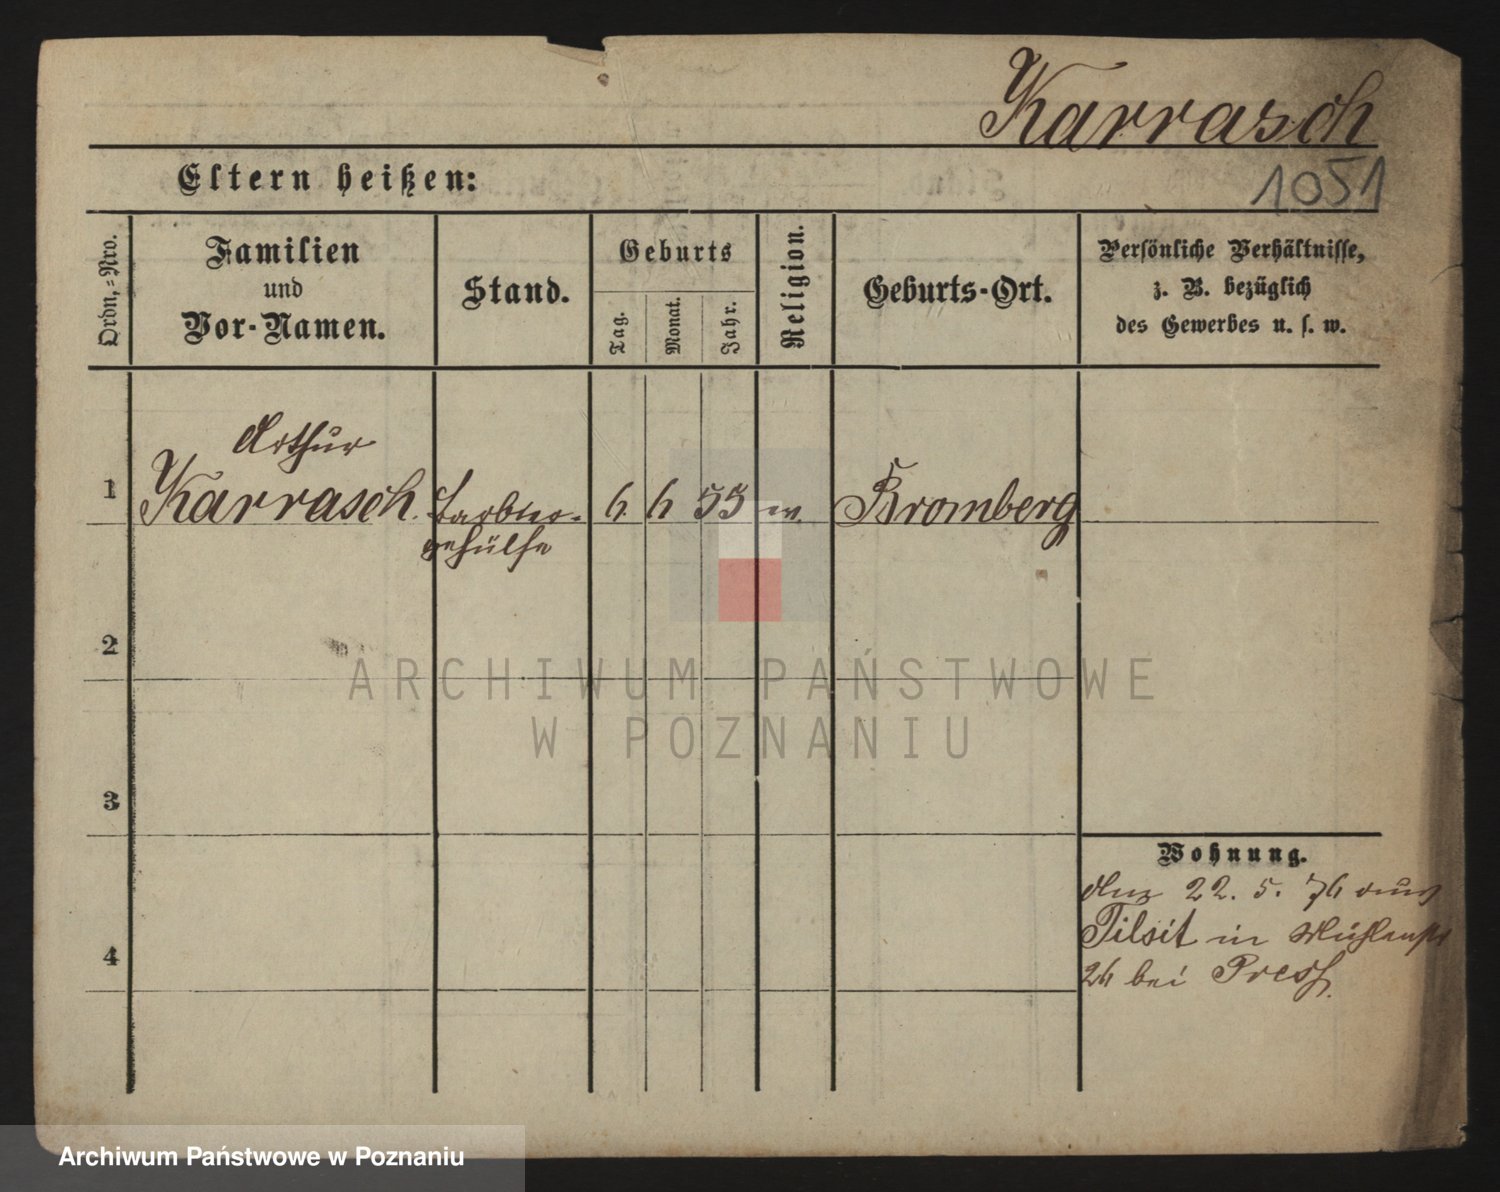 Karrasch
1051
Eltern heißen:
Ordn.-Nro.
Familien
und
Vor-Namen.
Stand.
Geburts
Tag.
Monat.
Jahr.
Religion.
Geburts-Ort.
Persönliche Verhältnisse,
z. B. bezüglich
des Gewerbes u. s. w.
Arthur
1 Karrasch. Farber- 6. 6 55 ev. Bromberg
gehülfe
2
ARCHIWUM PAŃSTWOWE
W POZNANIU
3
Wohnung.
Anz 22. 5. 76 aus
Tilsit in Mühlenstr
4
26 bei Press.
Archiwum Państwowe w Poznaniu